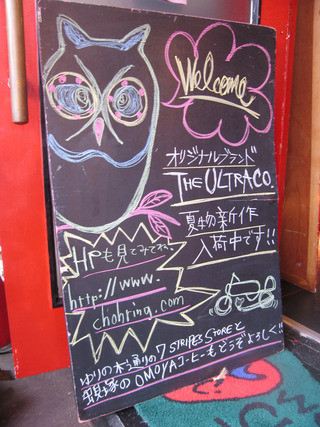 Welcome
オリジナルブランド
THE ULTRACO.
夏物新作
入荷中です!!
HPも見てみてね
http://www.
chohring.com
ゆりの木通りの7 STRIPES STOREと
頭塚のOMOYAコーヒーもどうぞよろしく!!